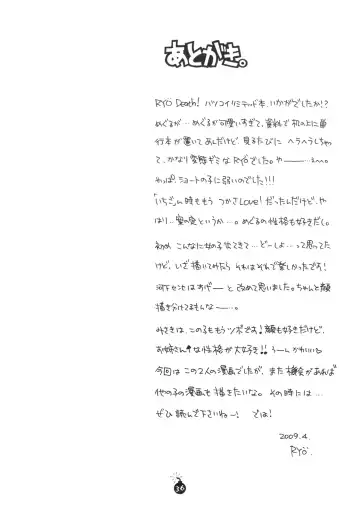 あとがき。
RYÖ Death! ハツコイリミテッド本、いかがでしたか!?
めぐるが… めぐるが可愛いすぎて、重れで 机の上に単
行本が置いてあんだけど、見るたびに ヘラヘラしちゃっ
て、かなり変態ギミな RYÖでした。や
ショートの子に弱いのでした!!!
「いちご」ん時も もう つかさLove! だったんだけど、や
はり…蜜の愛というか…。めぐるの性格も好きだし。
初め こんなに女の子出てきて…どーしよ…って思ってた
けど、いざ描いてみたら それはそれで楽しかったです!
河下センセはすげーと 改めて思いました。ちゃんと顔
描き分けてるもんなー…。
みさきは、この子ももうツボです! 顔も好きだけど、
お姉さんな性格が大好き!! うーんかわいい
今回は この2人の漫画でしたが、また機会があれば
他の子の漫画も描きたいな。その時には…
ぜひ 読んで下さいねー! では!
2009.4.
RYÖ.
36